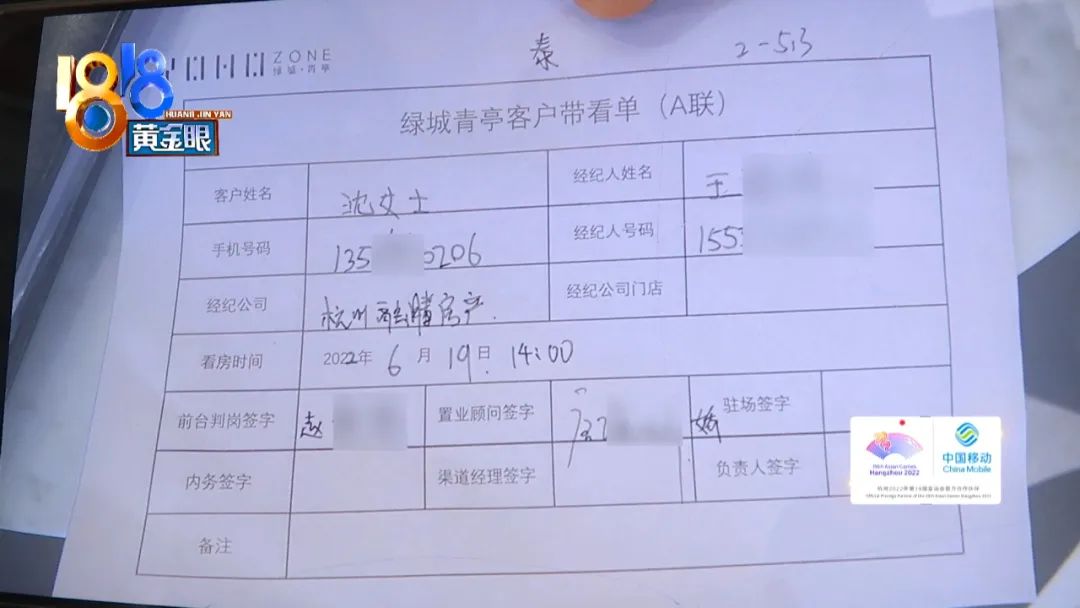 1818
HUANG JIN YAN
黄金眼
ZONE
绿城·青亭
泰
2-513
绿城青亭客户带看单（A联）
客户姓名 沈女士 经纪人姓名 王
手机号码 135 0206 经纪人号码 155
经纪公司 杭州 房产 经纪公司门店
看房时间 2022年 6 月 19 日 14:00
前台判岗签字 赵 置业顾问签字 娇 驻场签字
内务签字 渠道经理签字 负责人签字
备注
19th Asian Games
Hangzhou 2022
中国移动
China Mobile
杭州2022年第19届亚运会官方合作伙伴
Official Prestige Partner of the 19th Asian Games Hangzhou 2022